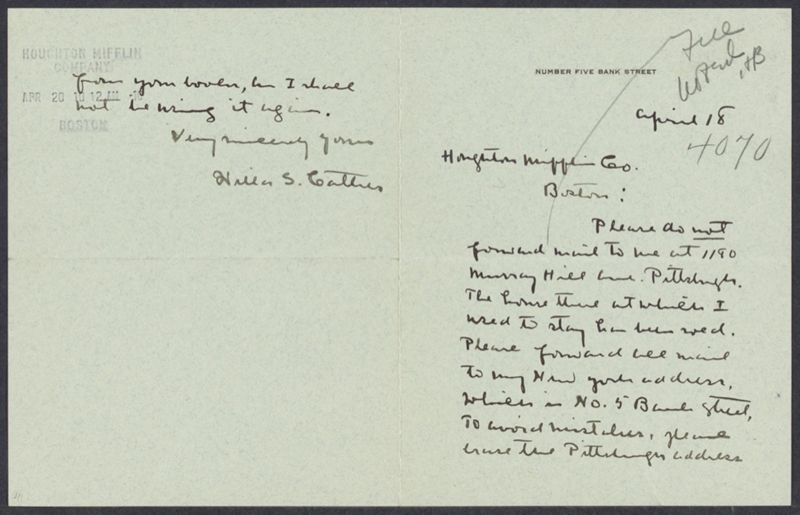 NUMBER FIVE BANK STREET
File
April 18
4070
Houghton Mifflin Co.
Boston:
Please do not
forward mail to me at 1190
Murray Hill Ave. Pittsburgh.
The house there at which I
used to stay has been sold.
Please forward all mail
to my New York address,
which is No. 5 Bank Street,
To avoid mistakes, please
erase the Pittsburgh address
HOUGHTON MIFFLIN
COMPANY
APR 20 10 12 AM
BOSTON
from your books, as I shall
not be using it again.
Very sincerely yours
Willa S. Cather